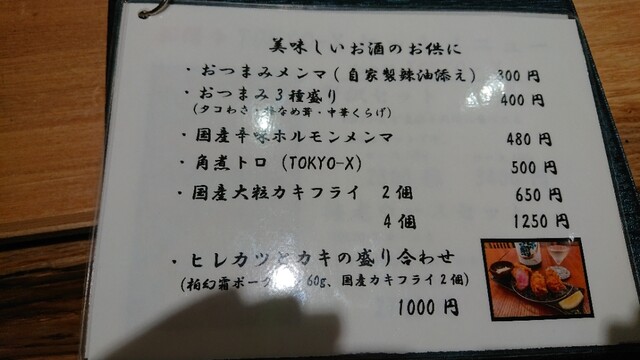 美味しいお酒のお供に
・おつまみメンマ(自家製辣油添え) 300円
・おつまみ3種盛り 400円
(タコわさ・なめ茸・中華くらげ)
・国産辛味ホルモンメンマ 480円
・角煮トロ (TOKYO-X) 500円
・国産大粒カキフライ 2個 650円
4個 1250円
・ヒレカツとカキの盛り合わせ
(柏幻霜ポーク 60g、国産カキフライ2個)
1000円